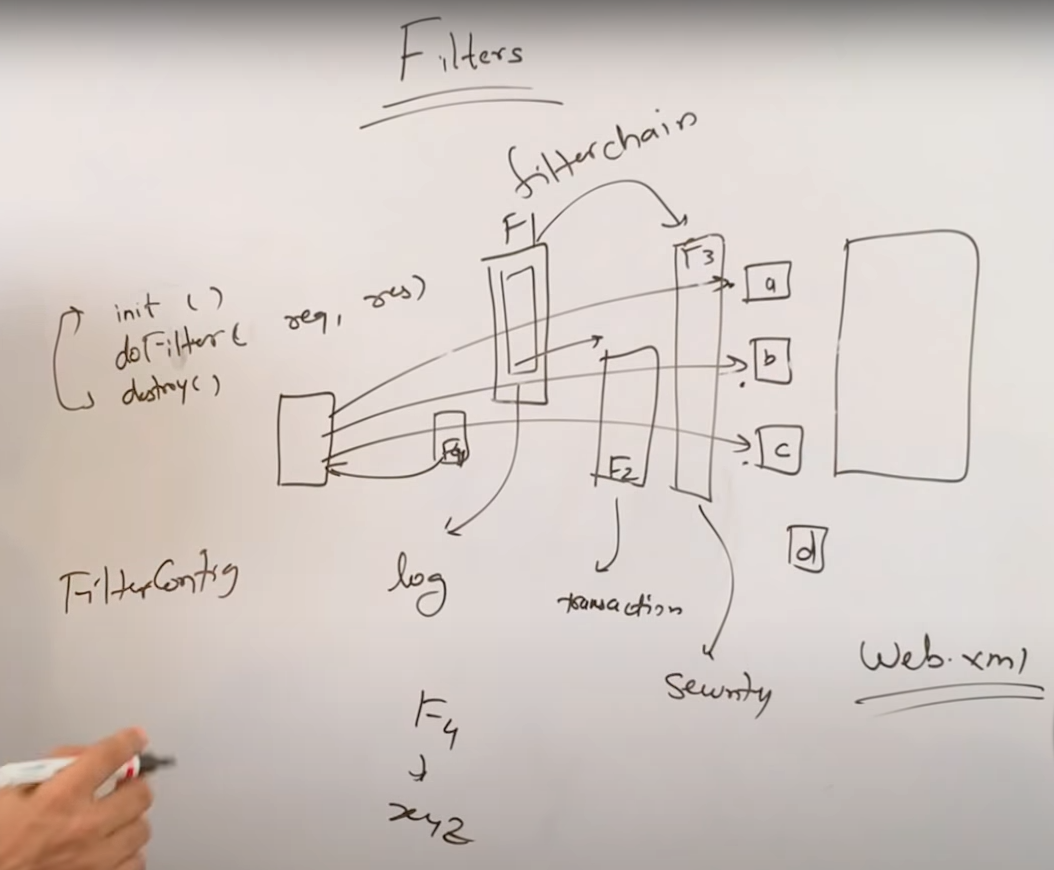 Filters
filterchain
F1
F3
a
init ()
doFilter( req, res)
destroy()
b
F4
F2
c
d
FilterConfig
log
transaction
Security
Web.xml
F4
xyz